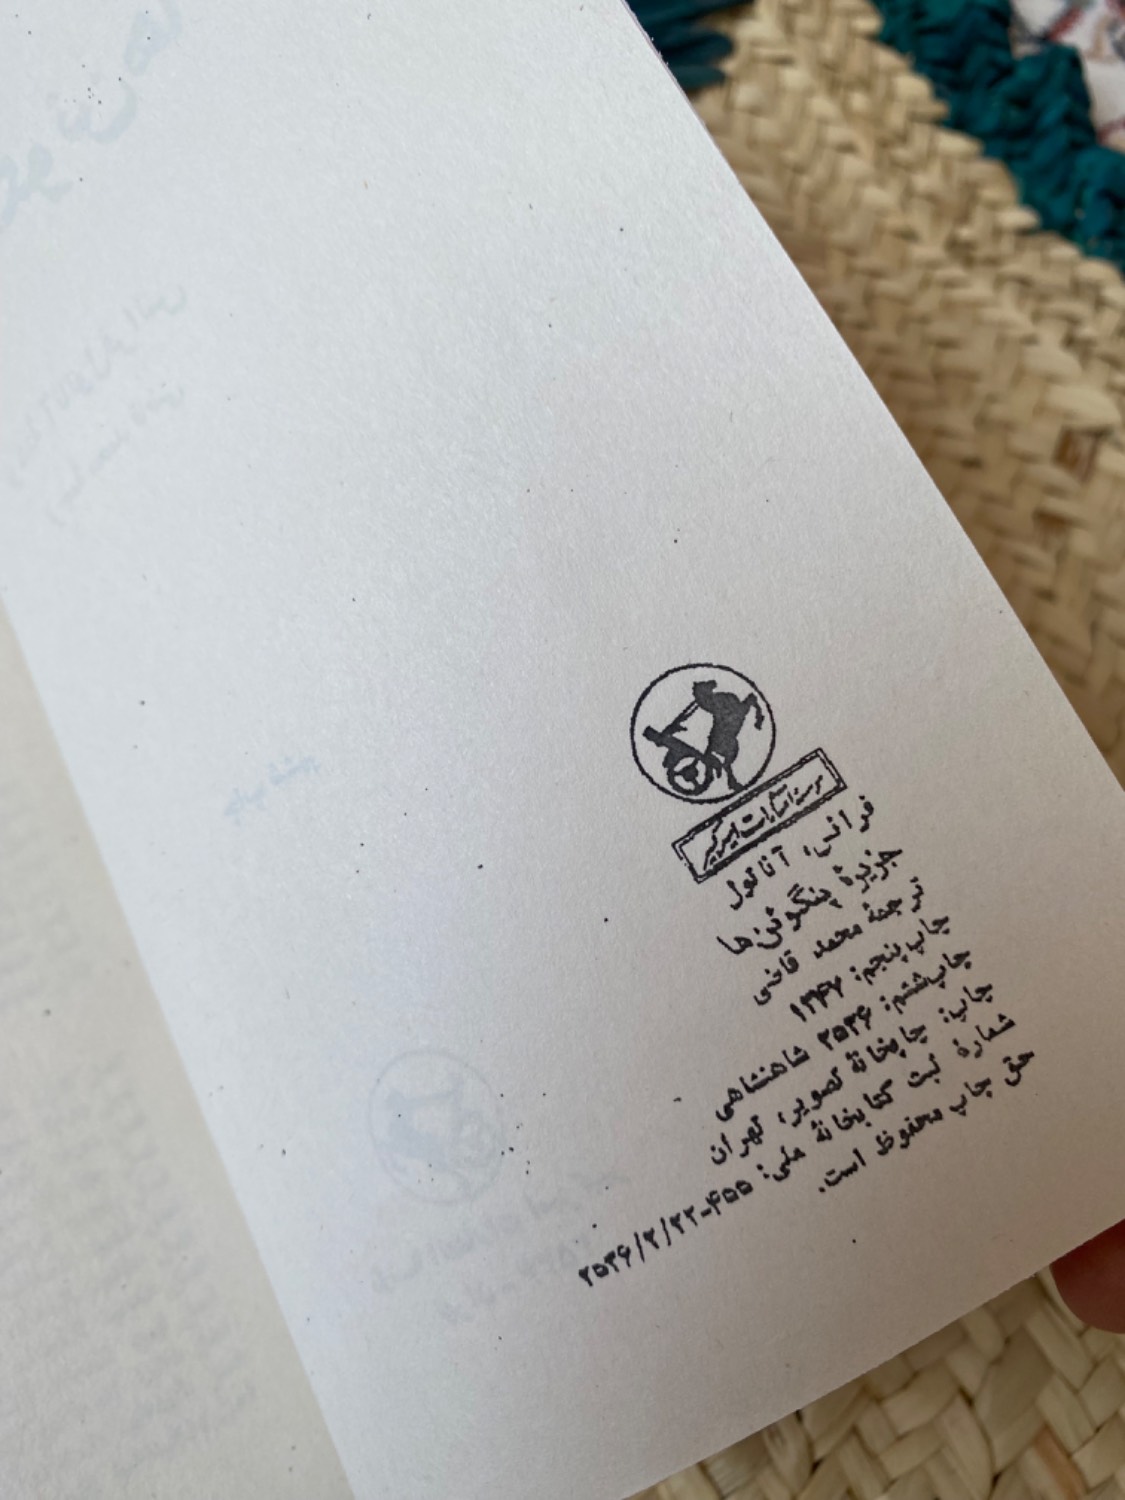 مؤسسهٔ انتشارات امیرکبیر
فرانس، آناتول
جزیرهٔ پنگوئن‌ها
ترجمهٔ محمد قاضی
چاپ پنجم: ۱۳۴۷
چاپ ششم: ۲۵۳۶ شاهنشاهی
چاپ: چاپخانهٔ تصویر، تهران
شمارهٔ ثبت کتابخانهٔ ملی: ۴۵۵-۲۵۳۶/۲/۲۲
حق چاپ محفوظ است.